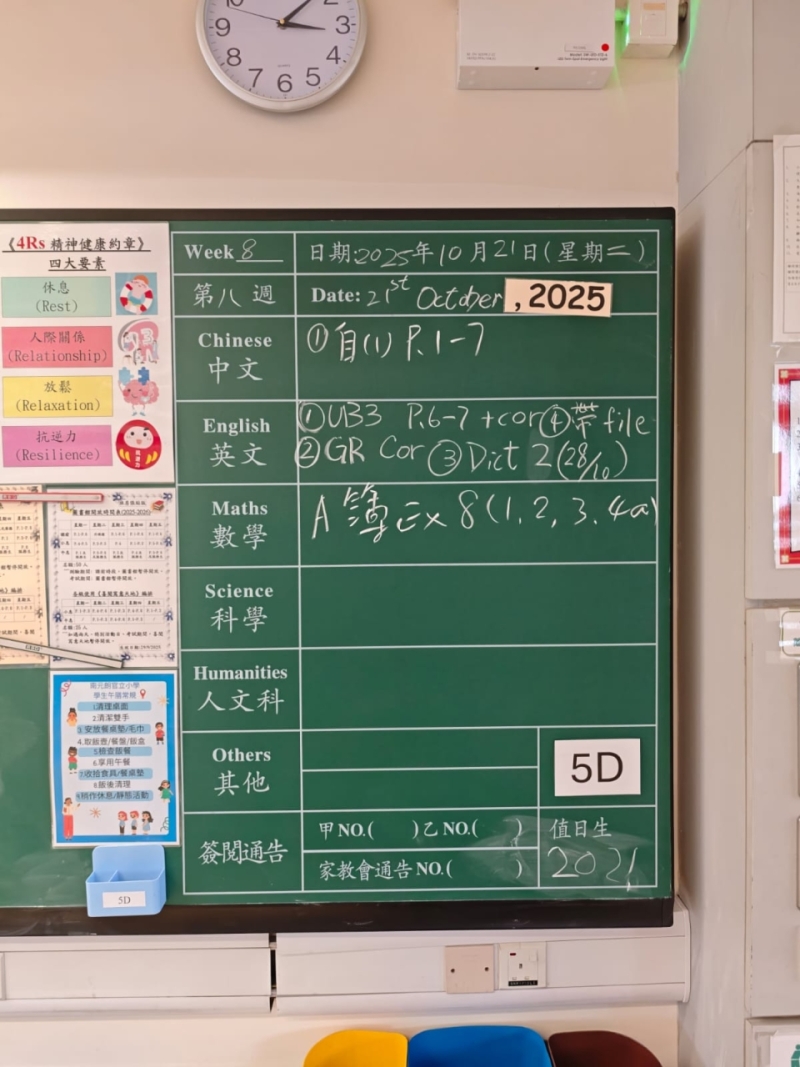 9
8
7
6
5
4
3
《4Rs 精神健康約章》
四大要素
休息
(Rest)
人際關係
(Relationship)
放鬆
(Relaxation)
抗逆力
(Resilience)
Week 8
日期:2025年10月21日(星期二)
第八週
Date: 21st October, 2025
Chinese
中文
①自(1) P.1-7
English
英文
①UB3 P.6-7 +cor④帶file
②GR Cor ③Dict 2(28/10)
Maths
數學
A簿 Ex 8(1, 2, 3, 4a)
Science
科學
Humanities
人文科
Others
其他
5D
簽閱通告
甲NO.( )乙NO.( )
家教會通告NO.( )
值日生
2021
學生午膳常規
1清理桌面
2.清潔雙手
3.安放餐桌墊/毛巾
4.取飯壺/餐盤/飯盒
5.檢查飯餐
6.享用午餐
7.收拾食具/餐桌墊
8飯後清理
9.稍作休息/靜態活動
5D